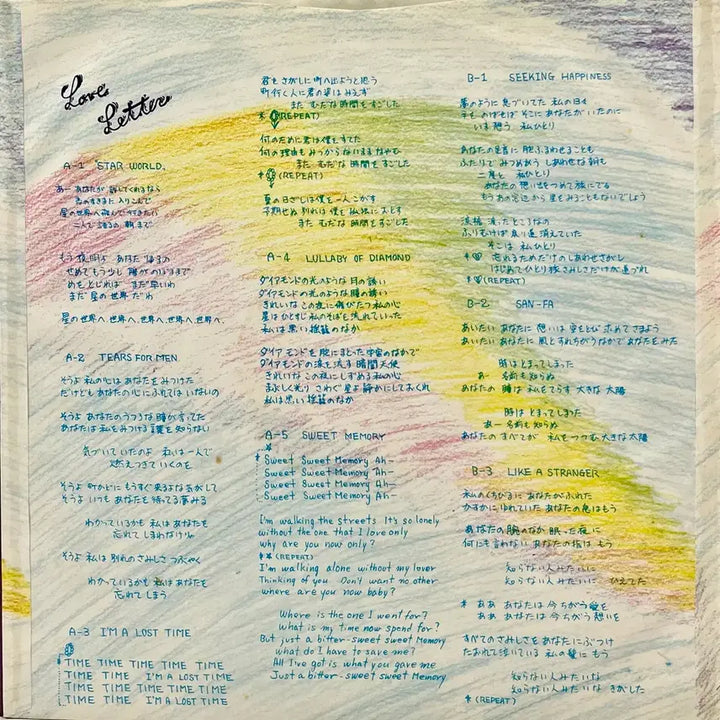 Love
Letter
A-1 STAR WORLD.
あー あなたが 許してくれるなら
心のすきまに 入りこんで
星の世界へ 飛んで行きたい
二人で 語ろう 朝まで
もう 夜明け あけた
せめて もう少し 瞳が
めをとじれば まだ 思いわ
まだ 星の世界 だわ
星の世界へ、世界へ、世界へ、世界へ、
A-2 TEARS FOR MEN
そうよ 私の心は あなたを みつけた
だけども あなたの 心に ふれては いないの
そうよ あなたの うつろな 瞳が 言ってた
あなたは 私を みつける 誰を 知らない
気づいていたのよ 私は 一人で
燃えつきて いくのを
そうよ 町かどに もうすぐ
そうよ いつも あなたを 待ってる 夢みる
わかっているから 私は あなたを
忘れて しまわなけりゃ
そうよ 私は 別れの さみしさ つぶやく
わかっているから 私は あなたを
忘れて しまう
A-3 I'M A LOST TIME
TIME TIME TIME TIME TIME
TIME TIME I'M A LOST TIME
TIME TIME TIME TIME TIME
TIME TIME I'M A LOST TIME
君を さがしに 町へ出ようと思う
町行く人に 君の 姿は みえず
また むだな 時間を すごした
* (REPEAT)
何のために 君は 僕を すてた
何の理由も みつからない まま なやむ
また むだな 時間を すごした
* (REPEAT)
夏の日ざしは 僕を 一人 こがす
予期せぬ 別れは 僕を 孤独に おとす
また むだな 時間を すごした
A-4 LULLABY OF DIAMOND
ダイアモンドの 光のような 月の 誘い
ダイアモンドの 光のような 瞳の 誘い
きれいな この夜に 傷びた 私の心
星は ひとすじ 私の そばを 流れていった
私は 黒い 揺籃の なか
ダイアモンドを 腕に まとった 宇宙の なかで
ダイアモンドの 涙を 流す 暗闇 天使
きれいな この夜に しずめる 私の心
まぶしく 光り さわぐ 星よ 静かに しておくれ
私は 黒い 揺籃の なか
A-5 SWEET MEMORY
* Sweet Sweet Memory Ah-
Sweet Sweet Memory Ah-
Sweet Sweet Memory Ah-
Sweet Sweet Memory Ah-
I'm walking the streets It's so lonely
without the one that I love only
why are you now only ?
* * (REPEAT)
I'm walking alone without my lover
Thinking of you Don't want no other
where are you now baby ?
Where is the one I went for ?
What is my time now spend for ?
But just a bitter-sweet sweet Memory
what do I have to save me ?
All I've got is what you gave me
Just a bitter-sweet sweet Memory
B-1 SEEKING HAPPINESS
夢のように 息づいてた 私の 日々
手を のばせば そこに あなたが いたのに
いま 想う 私ひとり
あなたの 足音に 胸ふるわせることも
ふたりで みつめあう しあわせな 朝も
二度と 私ひとり
あなたの 想い出を つめて 旅にでる
もう あの 窓辺から 星を みることもないでしょう
涙 流したところなの
ふりむけば 虹は 遠く 消えていた
そこは 私ひとり
* 忘れるためだけの しあわせさがし
はじめて ひとり旅 さみしさだけが 道づれ
* (REPEAT)
B-2 SAN-FA
あいたい あなたに 想いは 空をとび 求めて さまよう
あいたい あなたに 風と すれちがう なかで あなたを みた
時は とまって しまった
あー 名前も 知らぬ
あなたの 瞳は 私を てらす 大きな 太陽
時は とまって しまった
あー 名前も 知らぬ
あなたの すべてが 私を つつむ 大きな 太陽
B-3 LIKE A STRANGER
私の くちびるに あなたが ふれた
かすかに ゆれていた あなたの 息は もう
あなたの 腕の なか 眠った 夜に
何にも 言わない あなたの 指は もう
知らない 人みたいに
知らない 人みたいに ひえてた
* ああ あなたは 今 ちがう 愛を
ああ あなたは 今 ちがう 想いを
すべての さみしさを あなたに ぶつけ
たおれて 泣いている 私の 髪に もう
知らない 人みたいな
知らない 人みたいな きがした
* (REPEAT)